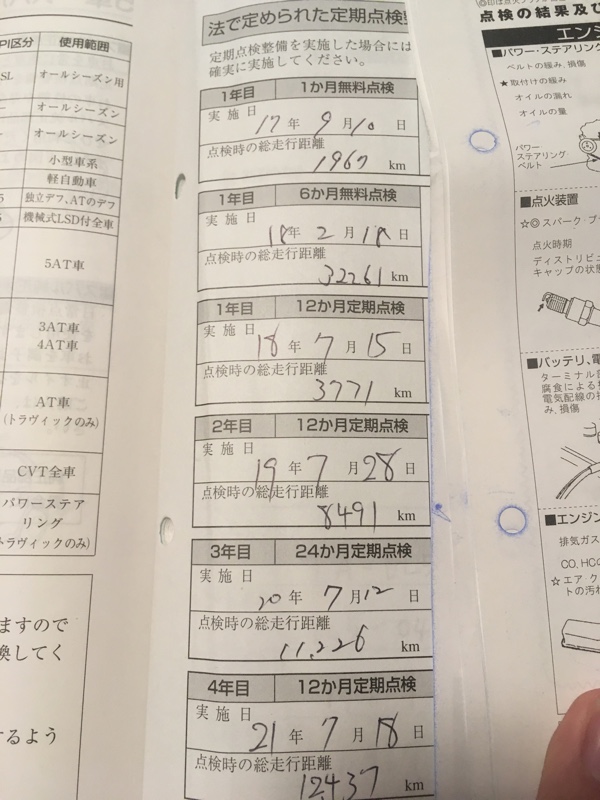 PI区分 使用範囲
SL オールシーズン用
オールシーズン
オールシーズン
小型車系
軽自動車
5 独立デフ、ATのデフ
機械式LSD付全車
5AT車
3AT車
4AT車
AT車
(トラヴィックのみ)
CVT全車
パワーステア
リング
トラヴィックのみ)
ますので
換してく
するよう
法で定められた定期点検整
定期点検整備を実施した場合には
確実に実施してください。
1年目 1か月無料点検
実施日
17年 9月10日
点検時の総走行距離
1967 km
1年目 6か月無料点検
実施日
18年 2月18日
点検時の総走行距離
km
1年目 12か月定期点検
実施日
18年 7月15日
点検時の総走行距離
3771 km
2年目 12か月定期点検
実施日
19年 7月28日
点検時の総走行距離
8491 km
3年目 24か月定期点検
実施日
20年 7月12日
点検時の総走行距離
11,226 km
4年目 12か月定期点検
実施日
21年 7月18日
点検時の総走行距離
12,437 km
点検の結果及び
エンジ
■パワー・ステアリング
ベルトの緩み、損傷
★取付けの緩み
オイルの漏れ
オイルの量
パワー
ステアリング
ベルト
■点火装置
☆◎スパーク・プラ
点火時期
ディストリビュ
キャップの状態
■バッテリ、電
ターミナル
腐食による
電気配線の
み、損傷
■エンジン
排気ガス
CO、HCの
☆エア・ク
トの汚れ